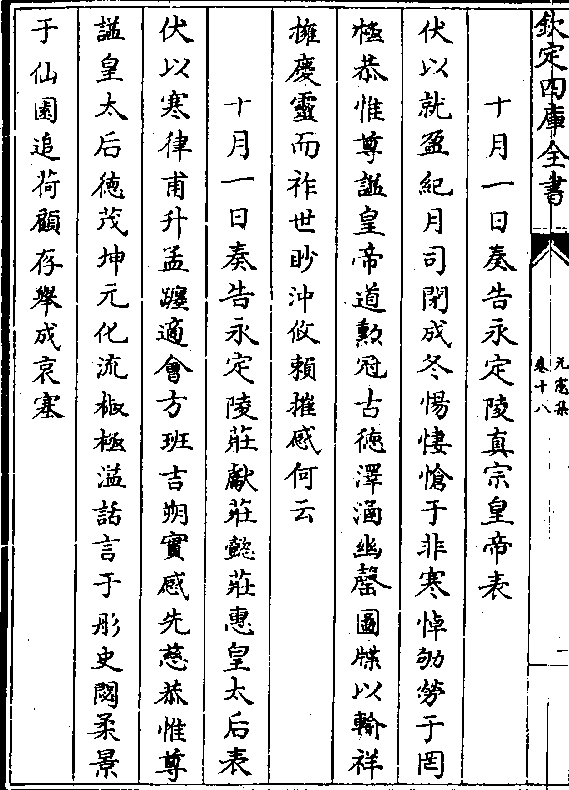 欽定四庫全書
元憲集
卷十八
十月一日奏告永定陵真宗皇帝表
伏以就盈紀月司閉成冬惕悽愴于非寒悼劬勞于罔
極恭惟尊諡皇帝道勲冠古徳澤涵幽罄圖牒以輸祥
擁慶靈而祚世眇沖攸賴摧感何云
十月一日奏告永定陵莊獻莊懿莊惠皇太后表
伏以寒律甫升孟躔適會方班吉朔實感先慈恭惟尊
諡皇太后徳茂坤元化流椒極溢話言于彤史閟柔景
于仙園追荷顧存舉成哀塞